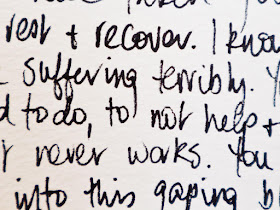 rest + recover. I know
suffering terribly. Y
d to do, to not help +
t never works. You
into this gaping b